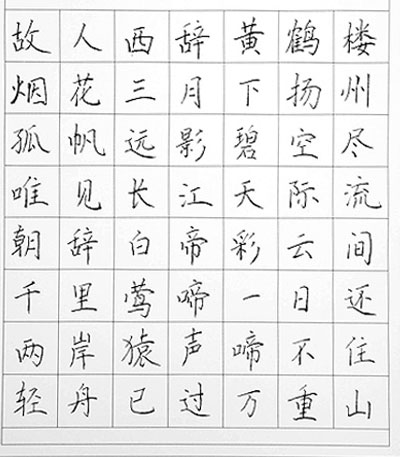 故人西辞黄鹤楼
烟花三月下扬州
孤帆远影碧空尽
唯见长江天际流
朝辞白帝彩云间
千里莺啼一日还
两岸猿声啼不住
轻舟已过万重山